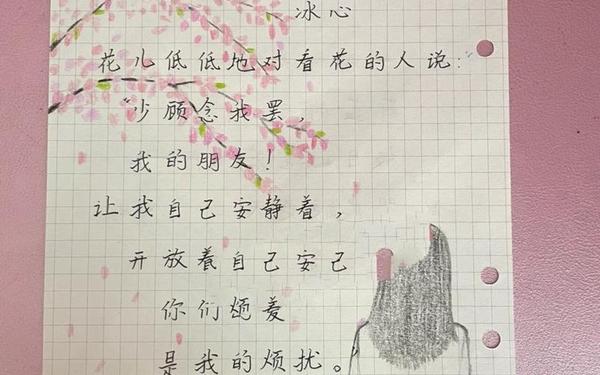 冰心
花儿低低地对看花的人说：“
“少顾念我罢，
我的朋友！
让我自己安静着，
开放着自己安己
你们
是我的烦扰。”